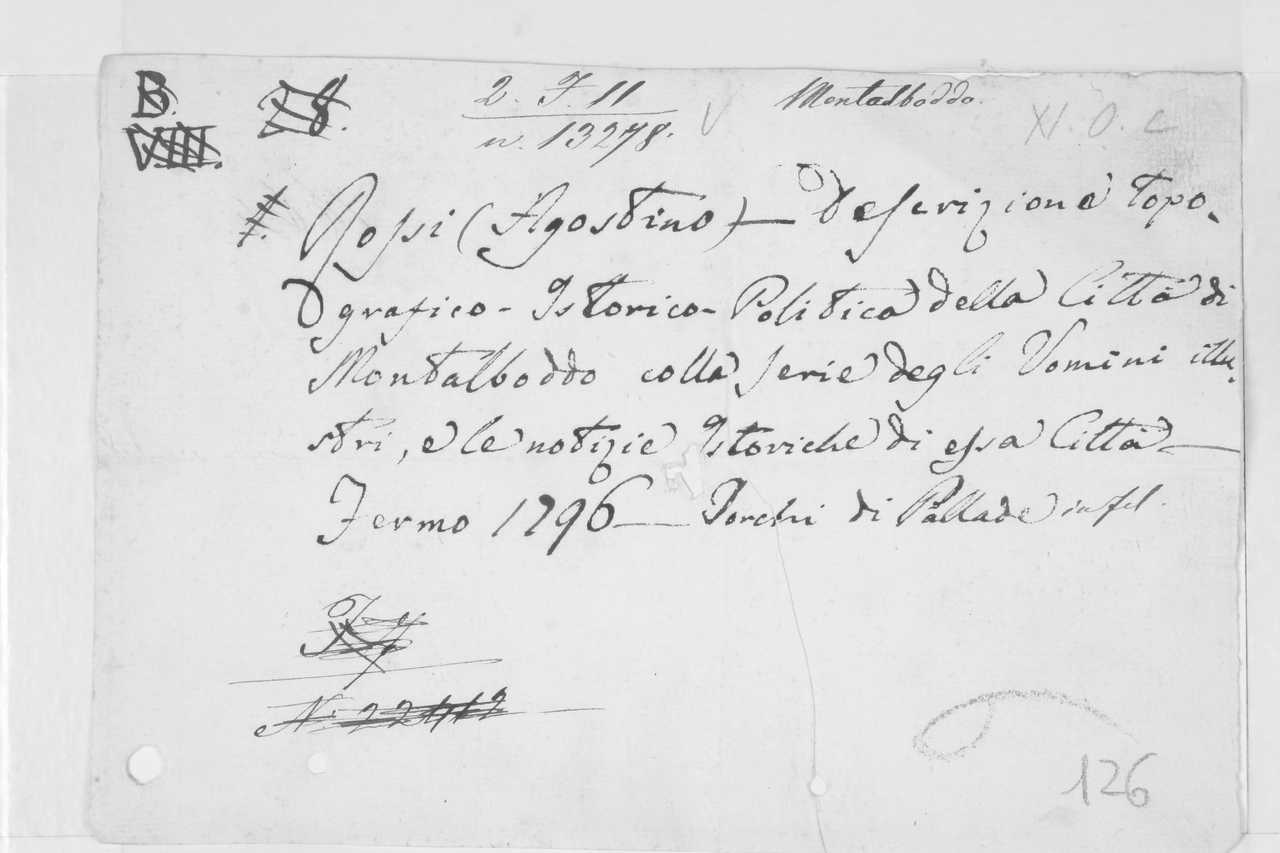 B. 2. F. 11 Montalboddo.
VIII. n. 13278. V XI. O. c
Rossi (Agostino) — Descrizione Topo-
grafico-Istorico-Politica della Città di
Montalboddo colla serie degli Uomini illu-
stri, e le notizie Istoriche di essa Città —
Fermo 1796 — Torchi di Pallade in fol.
126